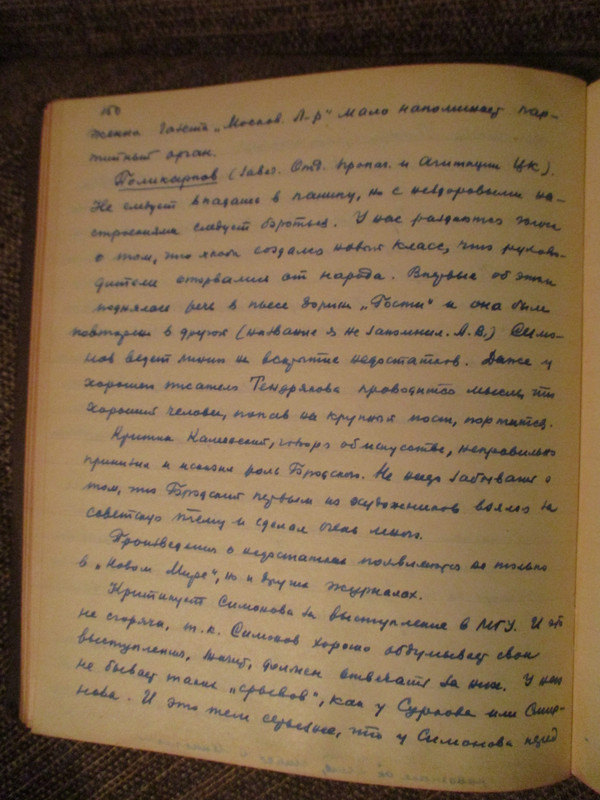 150
жении газета „Москов. Л-р" мало напоминает пар-
тийный орган.
Поликарпов (завед. Отд. пропаг. и агитации ЦК).
Не следует впадать в панику, но с нездоровыми на-
строениями следует бороться. У нас раздаются голоса
о том, что якобы создался новый класс, что руково-
дители оторвались от народа. Впервые об этом
поднялась речь в пьесе Зорина „Гости" и она была
повторена в других (название я не запомнил. А.В.) Симо-
нов ведет линию на вскрытие недостатков. Даже у
хорошего писателя Тендрякова проводится мысль, что
хороший человек, попав на крупный пост, портится.
Критик Каменский, говоря об искусстве, неправильно
принизил и исказил роль Бродского. Не надо забывать о
том, что Бродский первым из художников взялся за
советскую тему и сделал очень много.
Произведения о недостатках появляются не только
в „Новом Мире", но и других журналах.
Критикует Симонова за выступление в МГУ. И это
не сгоряча, т.к. Симонов хорошо обдумывает свои
выступления, значит, должен отвечать за них. У него
не бывает таких „срывов", как у Суркова или Смир-
нова. И это тем серьезнее, что у Симонова перед